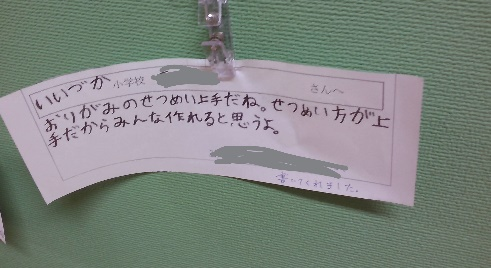 いいづか小学校 さんへ
おりがみのせつめい上手だね。せつめい方が上
手だからみんな作れると思うよ。
書いてくれました。